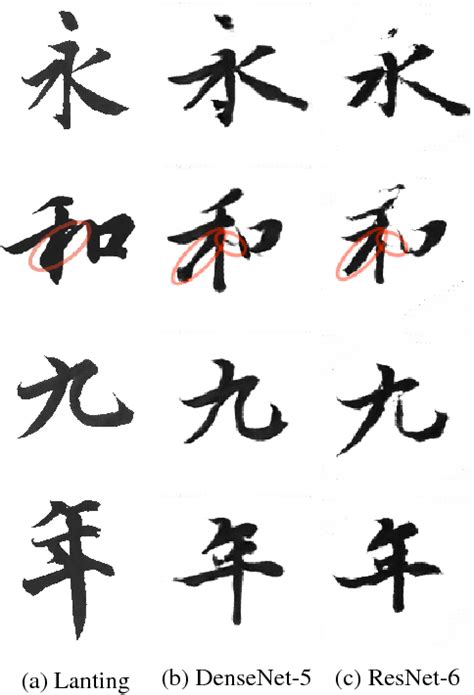 永 永 永
和 和 和
九 九 九
年 年 年
(a) Lanting (b) DenseNet-5 (c) ResNet-6